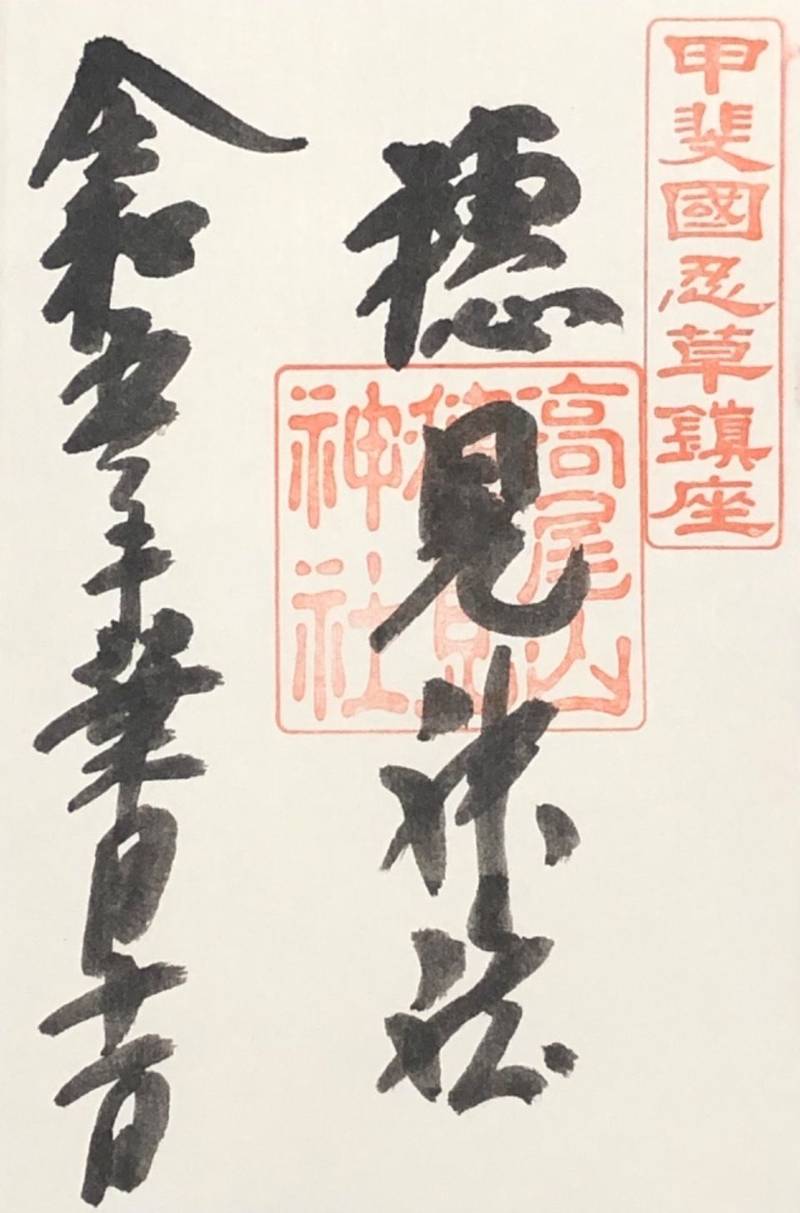 甲斐國忍草鎮座
高尾山
穂見
神社
穂見神社
令和五年葉月十一日